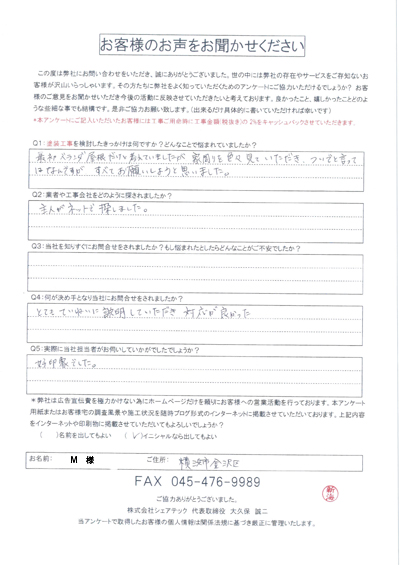 お客様のお声をお聞かせください
この度は弊社にお問い合わせをいただき、誠にありがとうございました。世の中には弊社の存在やサービスをご存知ないお
客様が沢山いらっしゃいます。その方たちに弊社をよく知っていただくためのアンケートにご協力いただけるでしょうか？お客
様のご意見をお聞かせいただき今後の活動に反映させていただきたいと考えております。良かったこと、嬉しかったことどのよ
うな些細な事でも結構です。是非ご協力お願い致します。（出来るだけ具体的に書いていただければ幸いです）
*本アンケートにご記入いただいたお客様には工事ご用命時に工事金額(税抜き)の2%をキャッシュバックさせていただきます。
Q1:塗装工事を検討したきっかけは何ですか？どんなことで悩まれていましたか？
最初ベランダ屋根だけを考えていましたが 家周りを良く見ていただき、ついでと言って
はなんですが すべてお願いしようと思いました。
Q2:業者や工事会社をどのように探されましたか？
主人がネットで探しました。
Q3:当社を知りすぐにお問合せをされましたか？もし悩まれたとしたらどんなことがご不安でしたか？
Q4:何が決め手となり当社にお問合せをされましたか？
とてもていねいに説明していただき 対応が良かった
Q5:実際に当社担当者がお伺いしていかがでしたでしょうか？
好印象でした。
*弊社は広告宣伝費を極力かけない為にホームページだけを頼りにお客様への営業活動を行っております。本アンケート
用紙またはお客様宅の調査風景や施工状況を随時ブログ形式のインターネットに掲載させていただいております。上記内容
をインターネットや印刷物に掲載させていただいてもよろしいでしょうか？
( )名前を出してもよい (✓)イニシャルなら出してもよい
お名前: M 様 ご住所: 横浜市金沢区
FAX 045-476-9989
ご協力ありがとうございました。
株式会社シェアテック 代表取締役 大久保 誠二
当アンケートで取得したお客様の個人情報は関係法規に基づき厳正に管理いたします。